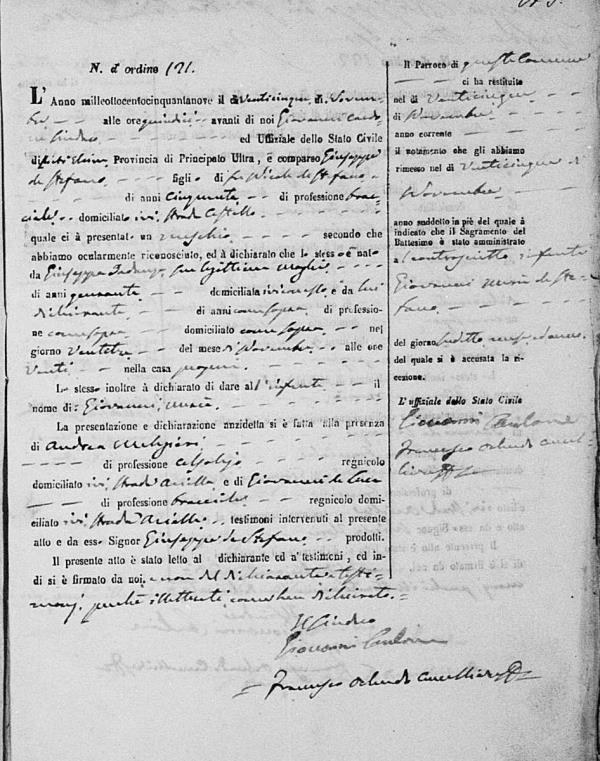 N. d' ordine 121.
L' Anno millottocentocinquantanove il dì Venticinque di Novem-
bre alle ore quindici avanti di noi Giovanni
Sindaco ed Uffiziale dello Stato Civile
di Provincia di Principato Ultra, è comparso Giuseppe
de Stefano figli o di fu Nicola de Stefano
di anni cinquanta di professione brac-
ciale domiciliato ivi, strada Castello
quale ci à presentat o un maschio secondo che
abbiamo ocularmente riconosciuto, ed à dichiarato che lo stess o è nat o
da Giuseppa sua legittima moglie
di anni quaranta domiciliata ivi con esso è da lui
dichiarante di anni come sopra di professio-
ne come sopra domiciliato come sopra nel
giorno Ventitre del mese di Novembre alle ore
Venti nella casa propria
Lo stess o inoltre à dichiarato di dare all' infante il
nome di Giovanni, Maria
La presentazione e dichiarazione anzidetta si è fatta alla presenza
di Andrea
di professione regnicolo
domiciliato ivi, strada Ariella e di Giovanni de
di professione bracciale regnicolo domi-
ciliato ivi strada Ariella testimoni intervenuti al presente
atto e da esso Signor Giuseppe de Stefano prodotti.
Il presente atto è stato letto al dichiarante ed a' testimoni, ed in-
di si è firmato da noi, e non dal dichiarante e testi-
monj, perchè illetterati, come han dichiarato.
Il Sindaco
Giovanni
Francesco Cancelliere
Il Parroco di questo Comune
ci ha restituito
nel dì Venticinque
di Novembre
anno corrente
il notamento che gli abbiamo
rimesso nel dì Venticinque di
Novembre
anno suddetto in piè del quale à
indicato che il Sagramento del
Battesimo è stato amministrato
al controscritto infante
Giovanni Maria de Ste-
fano
del giorno suddetto mese, ed anno.
del quale si è accusata la ri-
cezione.
L' uffiziale dello Stato Civile
Giovanni
Francesco Cancel-
liere